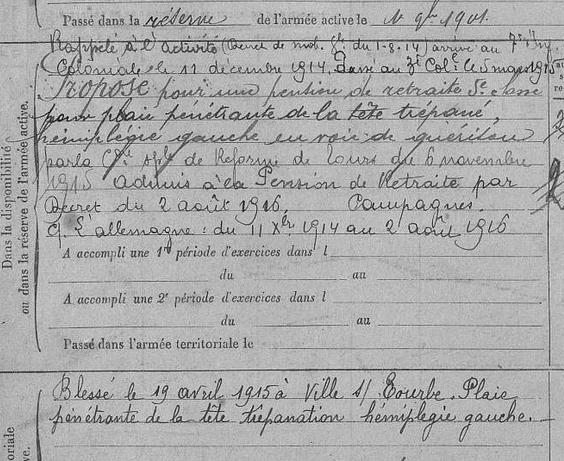 Passé dans la réserve de l'armée active le 1er 9bre 1901.
Rappelé à l'activité (Décret de mob. Gle du 1-8-14) arrivé au 7e
Coloniale le 11 décembre 1914. Passé au 3e Colal le 5 mars 1915
Proposé pour une pension de retraite 5e classe
pour plaie pénétrante de la tête trépané,
hémiplégie gauche en voie de guérison
par la Con sple de Réforme de Tours du 6 novembre
1915 admis à la Pension de Retraite par
Décret du 2 août 1916, Campagnes.
C. L'allemagne : du 11 Xbr 1914 au 2 août 1916
Dans la disponibilité
ou dans la réserve de l'armée active.
A accompli une 1re période d'exercices dans l
du au
A accompli une 2e période d'exercices dans l
du au
Passé dans l'armée territoriale le
Blessé le 19 avril 1915 à Ville s/ Tourbe. Plaie
pénétrante de la tête trépanation hémiplégie gauche.